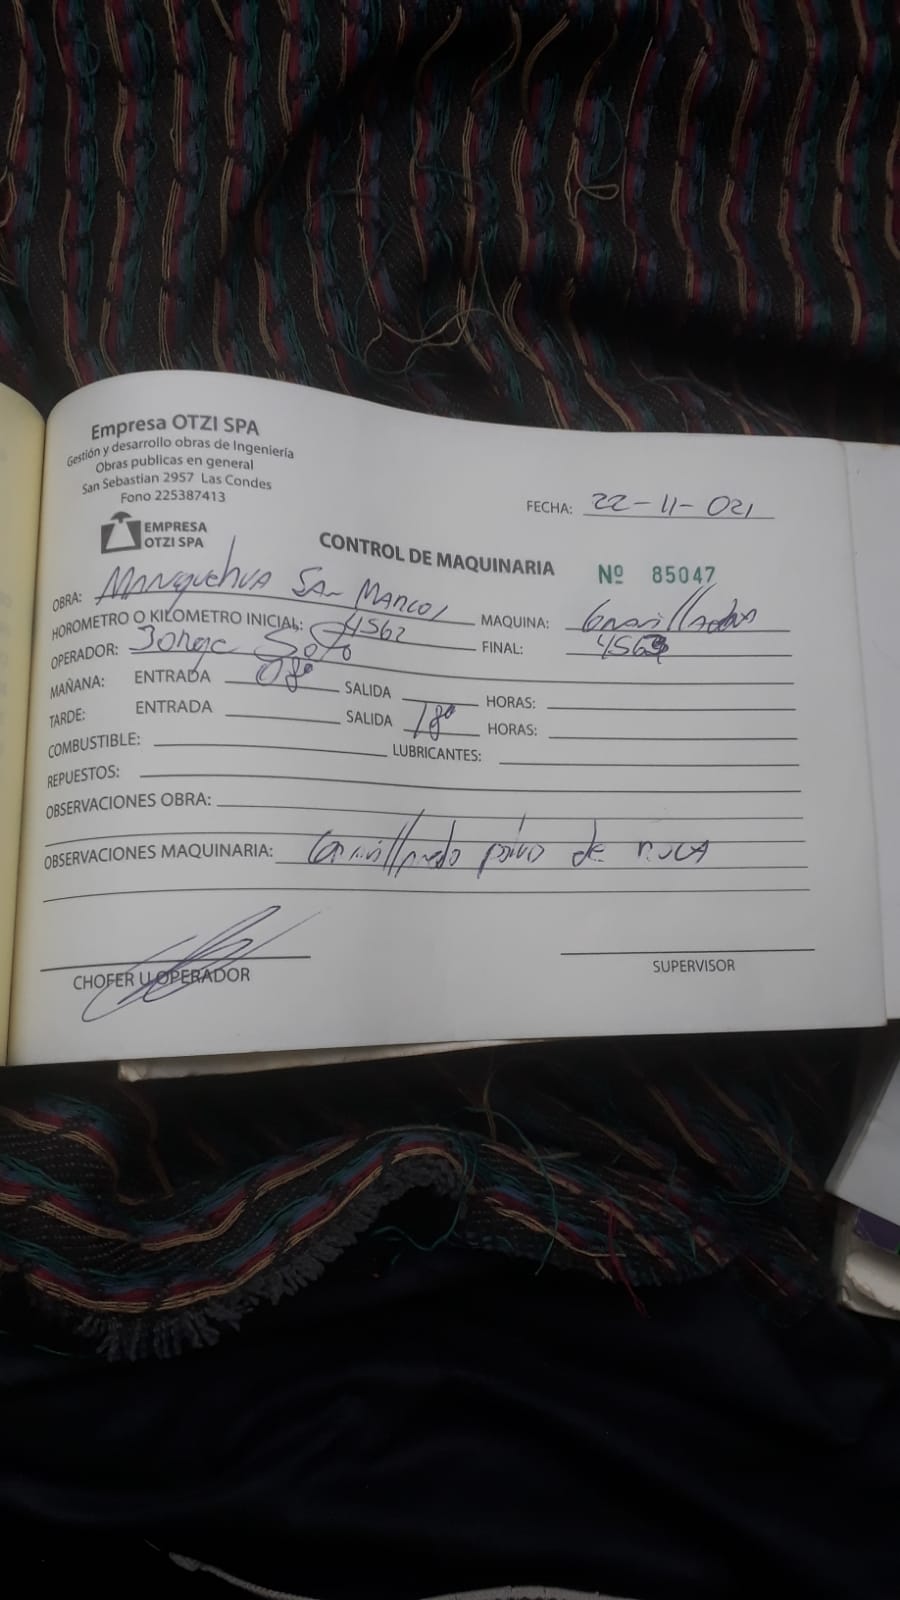 Empresa OTZI SPA
Gestión y desarrollo obras de Ingeniería
Obras publicas en general
San Sebastian 2957 Las Condes
Fono 225387413
FECHA: 22-11-021
EMPRESA
OTZI SPA
CONTROL DE MAQUINARIA Nº 85047
OBRA: Manquehua San Marcos MAQUINA: Gravilladora
HOROMETRO O KILOMETRO INICIAL: 4562 FINAL: 4563
OPERADOR: Jorge Soto
MAÑANA: ENTRADA 08º SALIDA HORAS:
TARDE: ENTRADA SALIDA 18º HORAS:
COMBUSTIBLE: LUBRICANTES:
REPUESTOS:
OBSERVACIONES OBRA:
OBSERVACIONES MAQUINARIA: Gravillado polvo de roca
CHOFER U OPERADOR SUPERVISOR